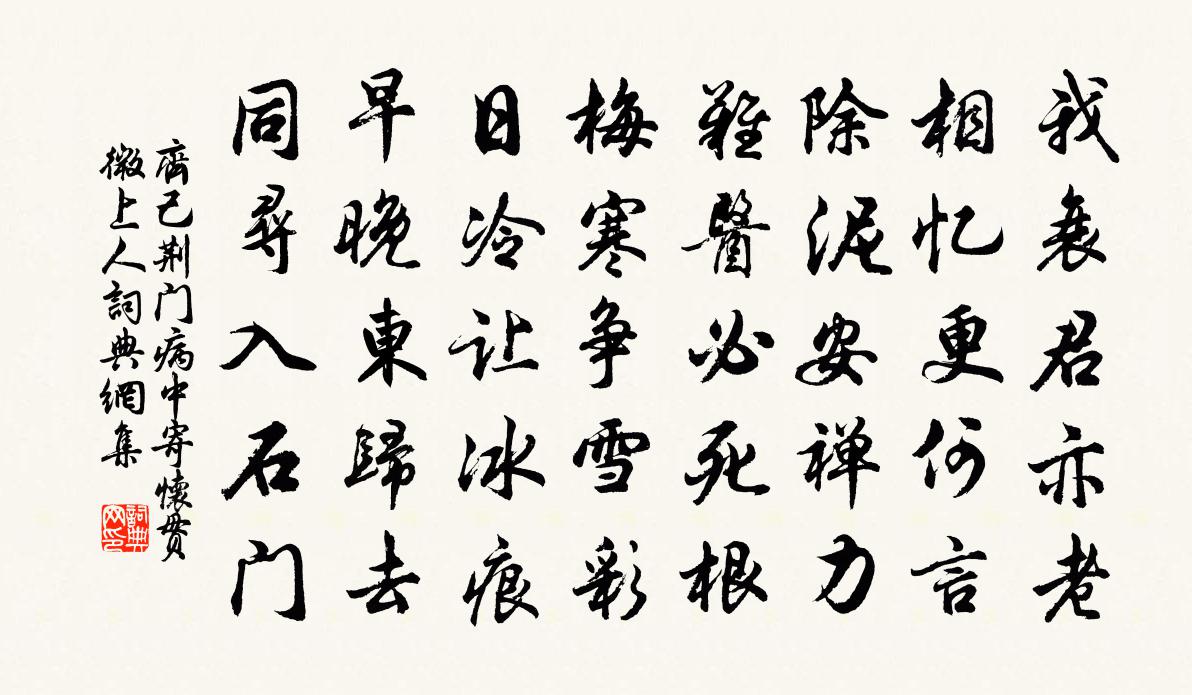 我衰君亦老
相忆更何言
除泥安禅力
難醫必死根
梅寒争雪彩
日冷让冰痕
早晚東歸去
同尋入石门
齊己荆门病中寄懷貫
微上人詞典網集
詞典网印